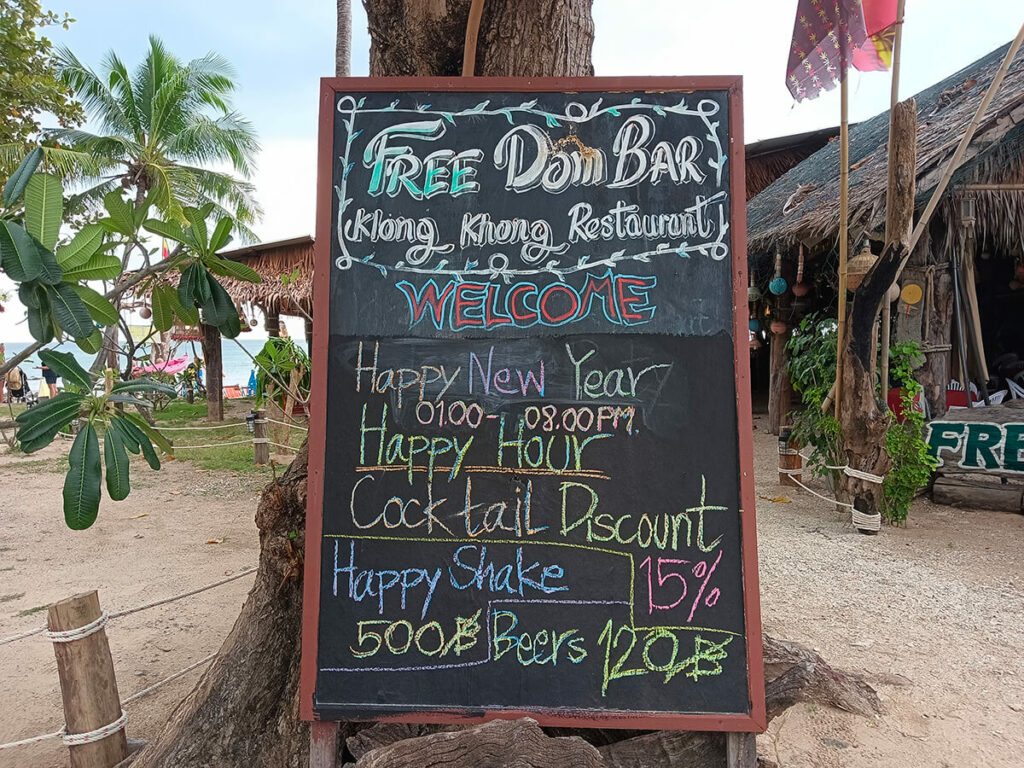 FREE Dom BAR
Klong Khong Restaurant
WELCOME
Happy New Year
01.00 - 08.00 PM.
Happy Hour
Cocktail Discount
15%
Happy Shake
500฿
Beers 120฿
FRE